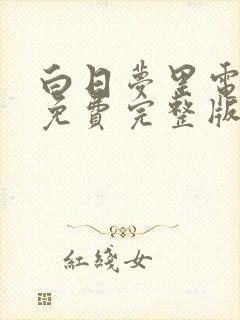 白日夢里電
免費完整版
紅綫女